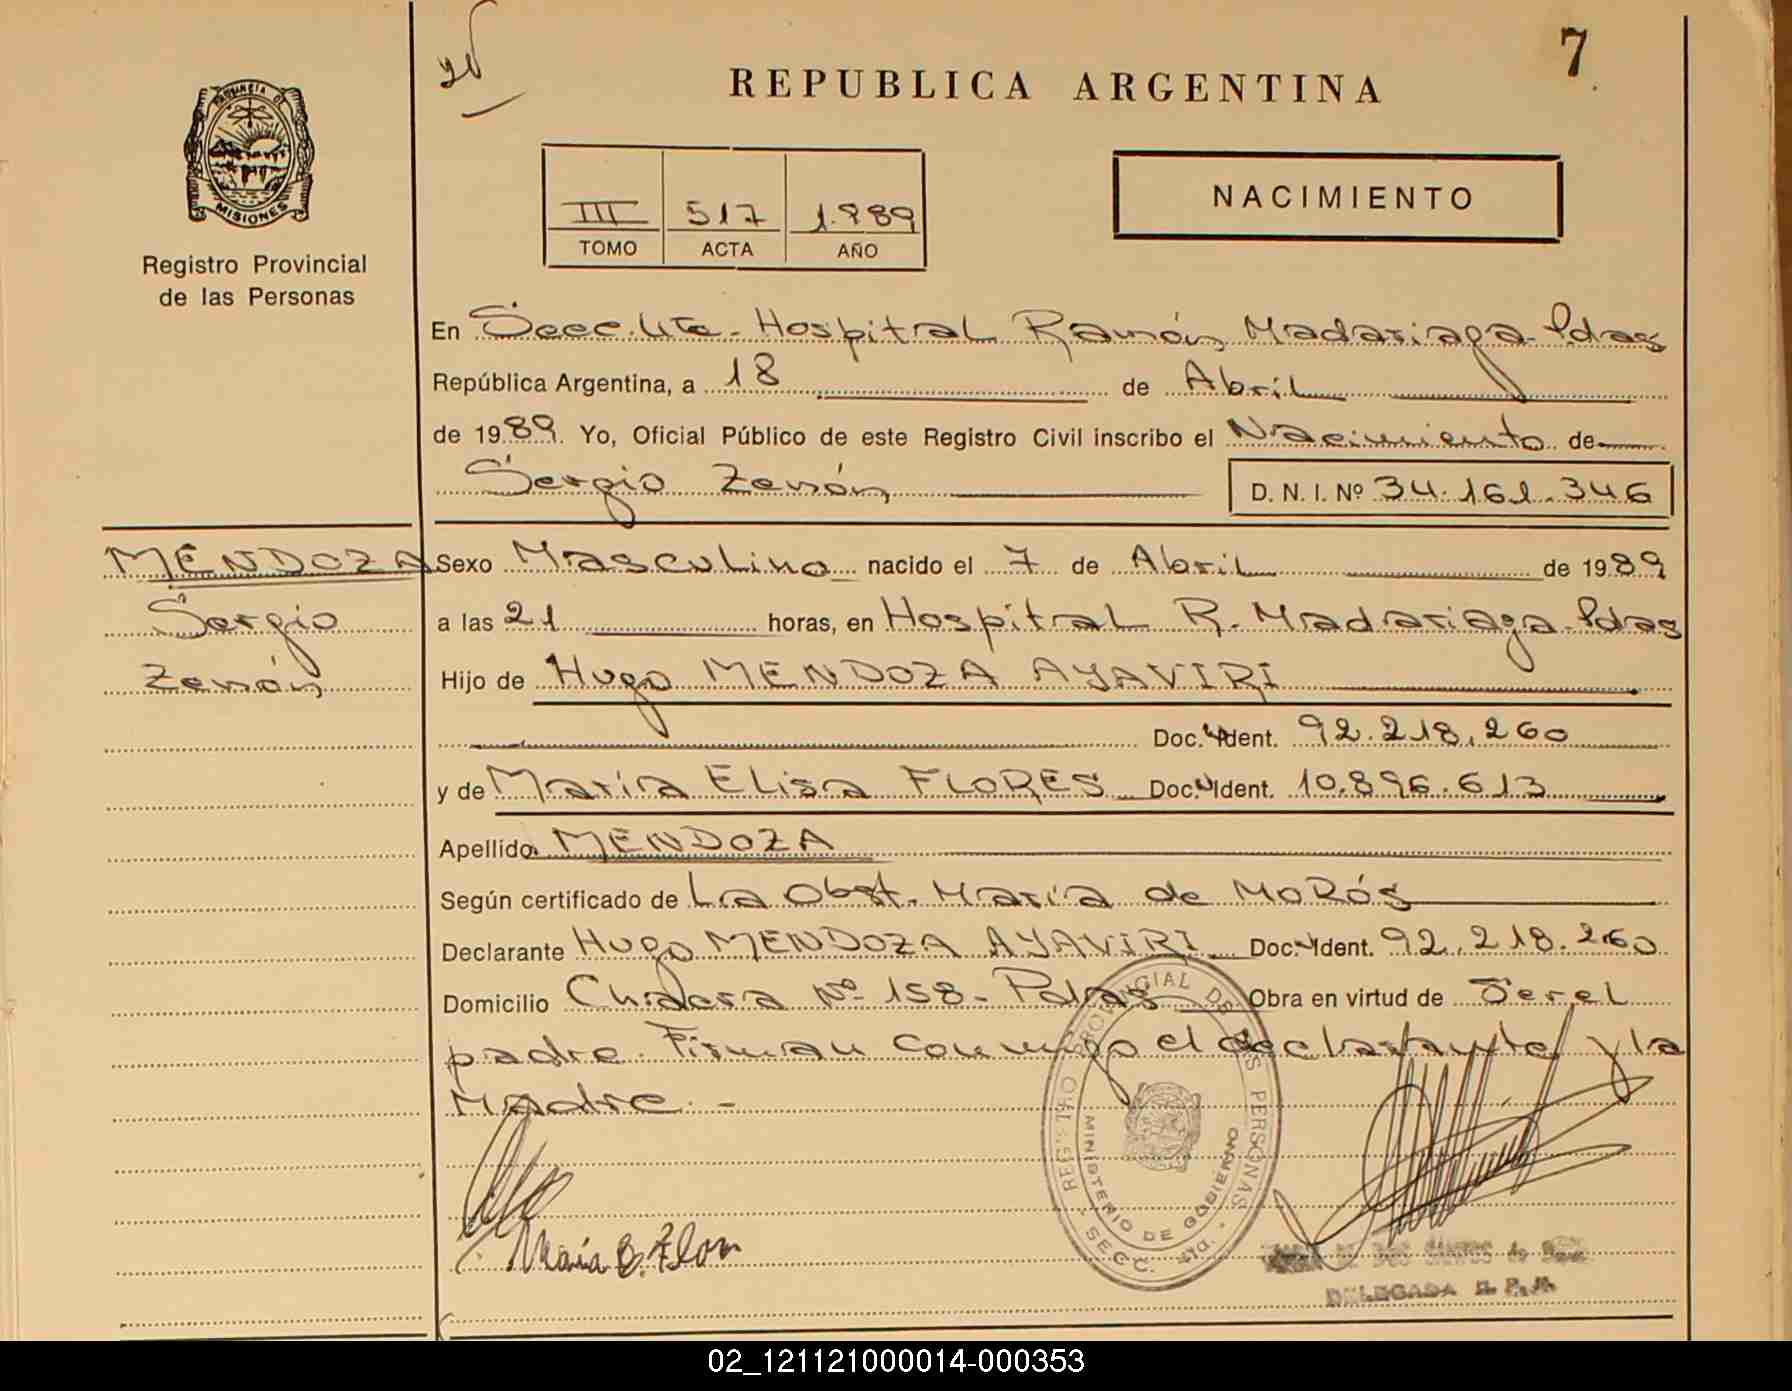 7
REPUBLICA ARGENTINA
PROVINCIA DE
MISIONES
Registro Provincial
de las Personas
III 517 1.989
TOMO ACTA AÑO
NACIMIENTO
En Secc. Hospital Ramón Madariaga-Pdas
República Argentina, a 18 de Abril
de 1989. Yo, Oficial Público de este Registro Civil inscribo el Nacimiento de
Sergio Zenón D. N. I. Nº 34.161.346
MENDOZA
Sergio
Zenón
Sexo Masculino nacido el 7 de Abril de 1989
a las 21 horas, en Hospital R. Madariaga-Pdas
Hijo de Hugo MENDOZA AYAVIRI
Doc. Ident. 92.218.260
y de María Elisa FLORES Doc. Ident. 10.896.613
Apellido MENDOZA
Según certificado de La Obst. María de MoRós
Declarante Hugo MENDOZA AYAVIRI Doc. Ident. 92.218.260
Domicilio Nº 158- Pdas Obra en virtud de Ser el
padre. Firman conmigo el declarante y la
Madre.-
REGISTRO PROVINCIAL DE LAS PERSONAS
MINISTERIO DE GOBIERNO
SECC.
María E. Flores
DELEGADA R. P. P.
02_121121000014-000353